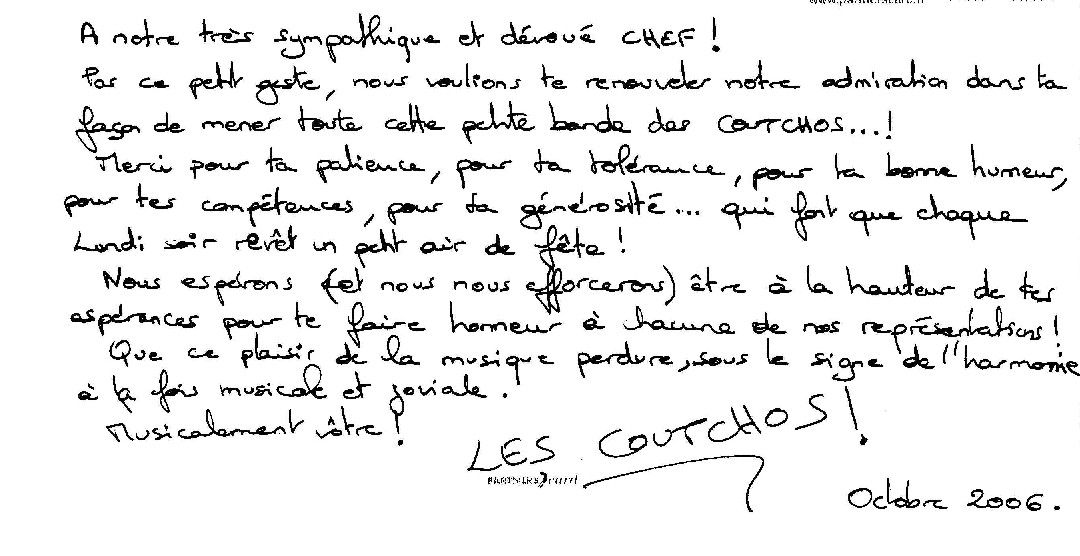 A notre très sympathique et dévoué CHEF !
Par ce petit geste, nous voulions te renouveler notre admiration dans ta
façon de mener toute cette petite bande des COUTCHOS...!
Merci pour ta patience, pour ta tolérance, pour ta bonne humeur,
pour tes compétences, pour ta générosité... qui font que chaque
Lundi soir revêt un petit air de fête !
Nous espérons (et nous nous efforcerons) être à la hauteur de tes
espérances pour te faire honneur à chacune de nos représentations !
Que ce plaisir de la musique perdure, sous le signe de l'harmonie
à la fois musicale et joviale.
Musicalement vôtre !
LES COUTCHOS !
PARTNERS
Octobre 2006.